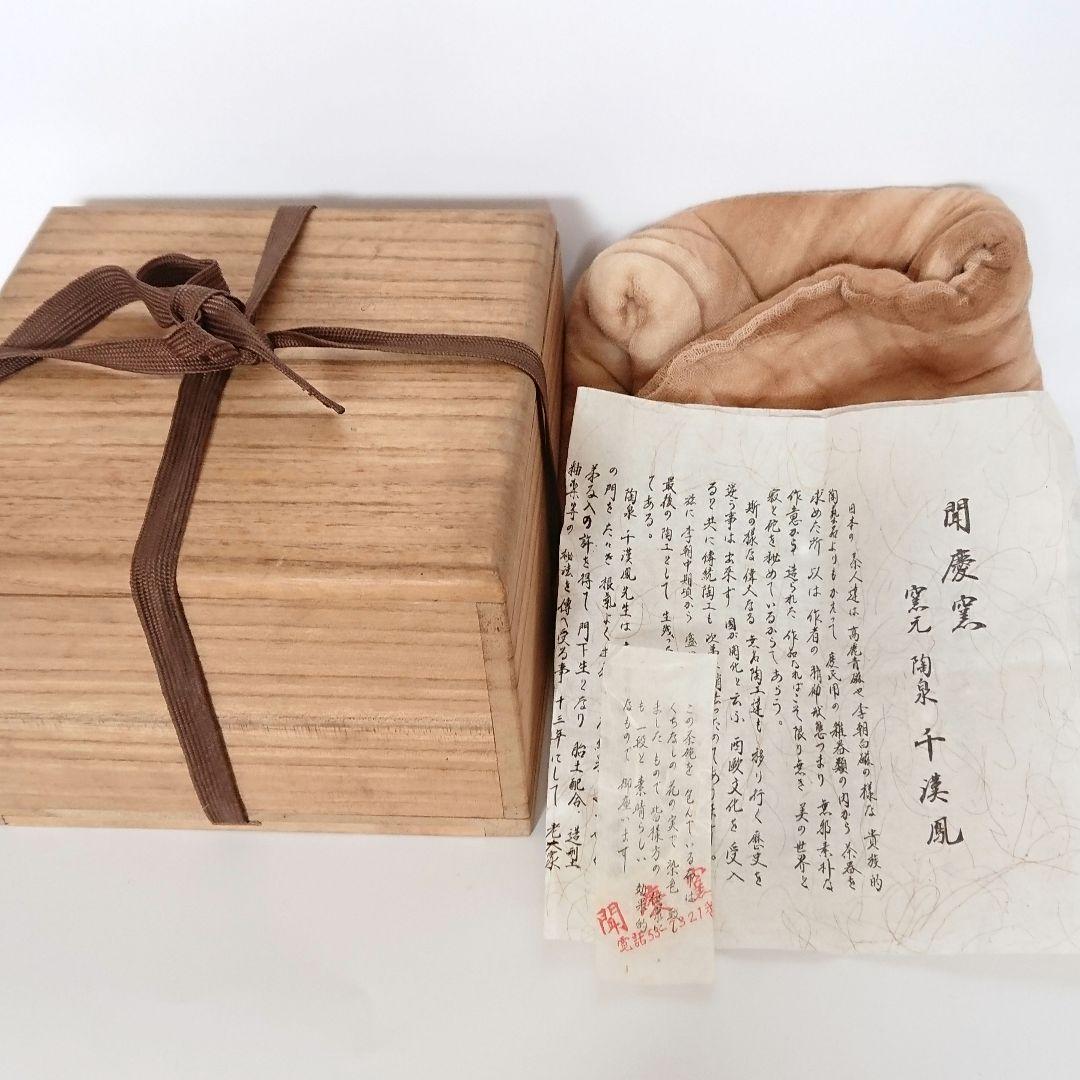 聞慶窯
窯元 陶泉 千漢鳳
日本の茶人達は高麗青磁や李朝白磁の様な貴族的
陶磁器よりもかえって庶民用の雑器類の内から茶器を
求めた所以は作者の精神状態つまり無邪素朴な
作意から造られた作品なればこそ限り無き美の世界と
寂と侘を秘めているからであろう。
斯の様な偉大なる無名陶工達も移り行く歴史を
逆う事は出来ず国が開化と云ふ西欧文化を受入
ると共に傳統陶工も
玆に李朝中期頃から
最後の陶工として生残った
である。
陶泉千漢鳳先生は
の門をたたき根氣よく
弟子入の許を得て門下生となり胎土配合、造型
釉薬等の秘法を傳へ受る事十三年にして老大家
この茶碗を包んでいる布は
くちなしの花の実で染色
ましたもので皆様方の
も一段と素晴らしい効果的
なもので御座います
聞慶窯
電話